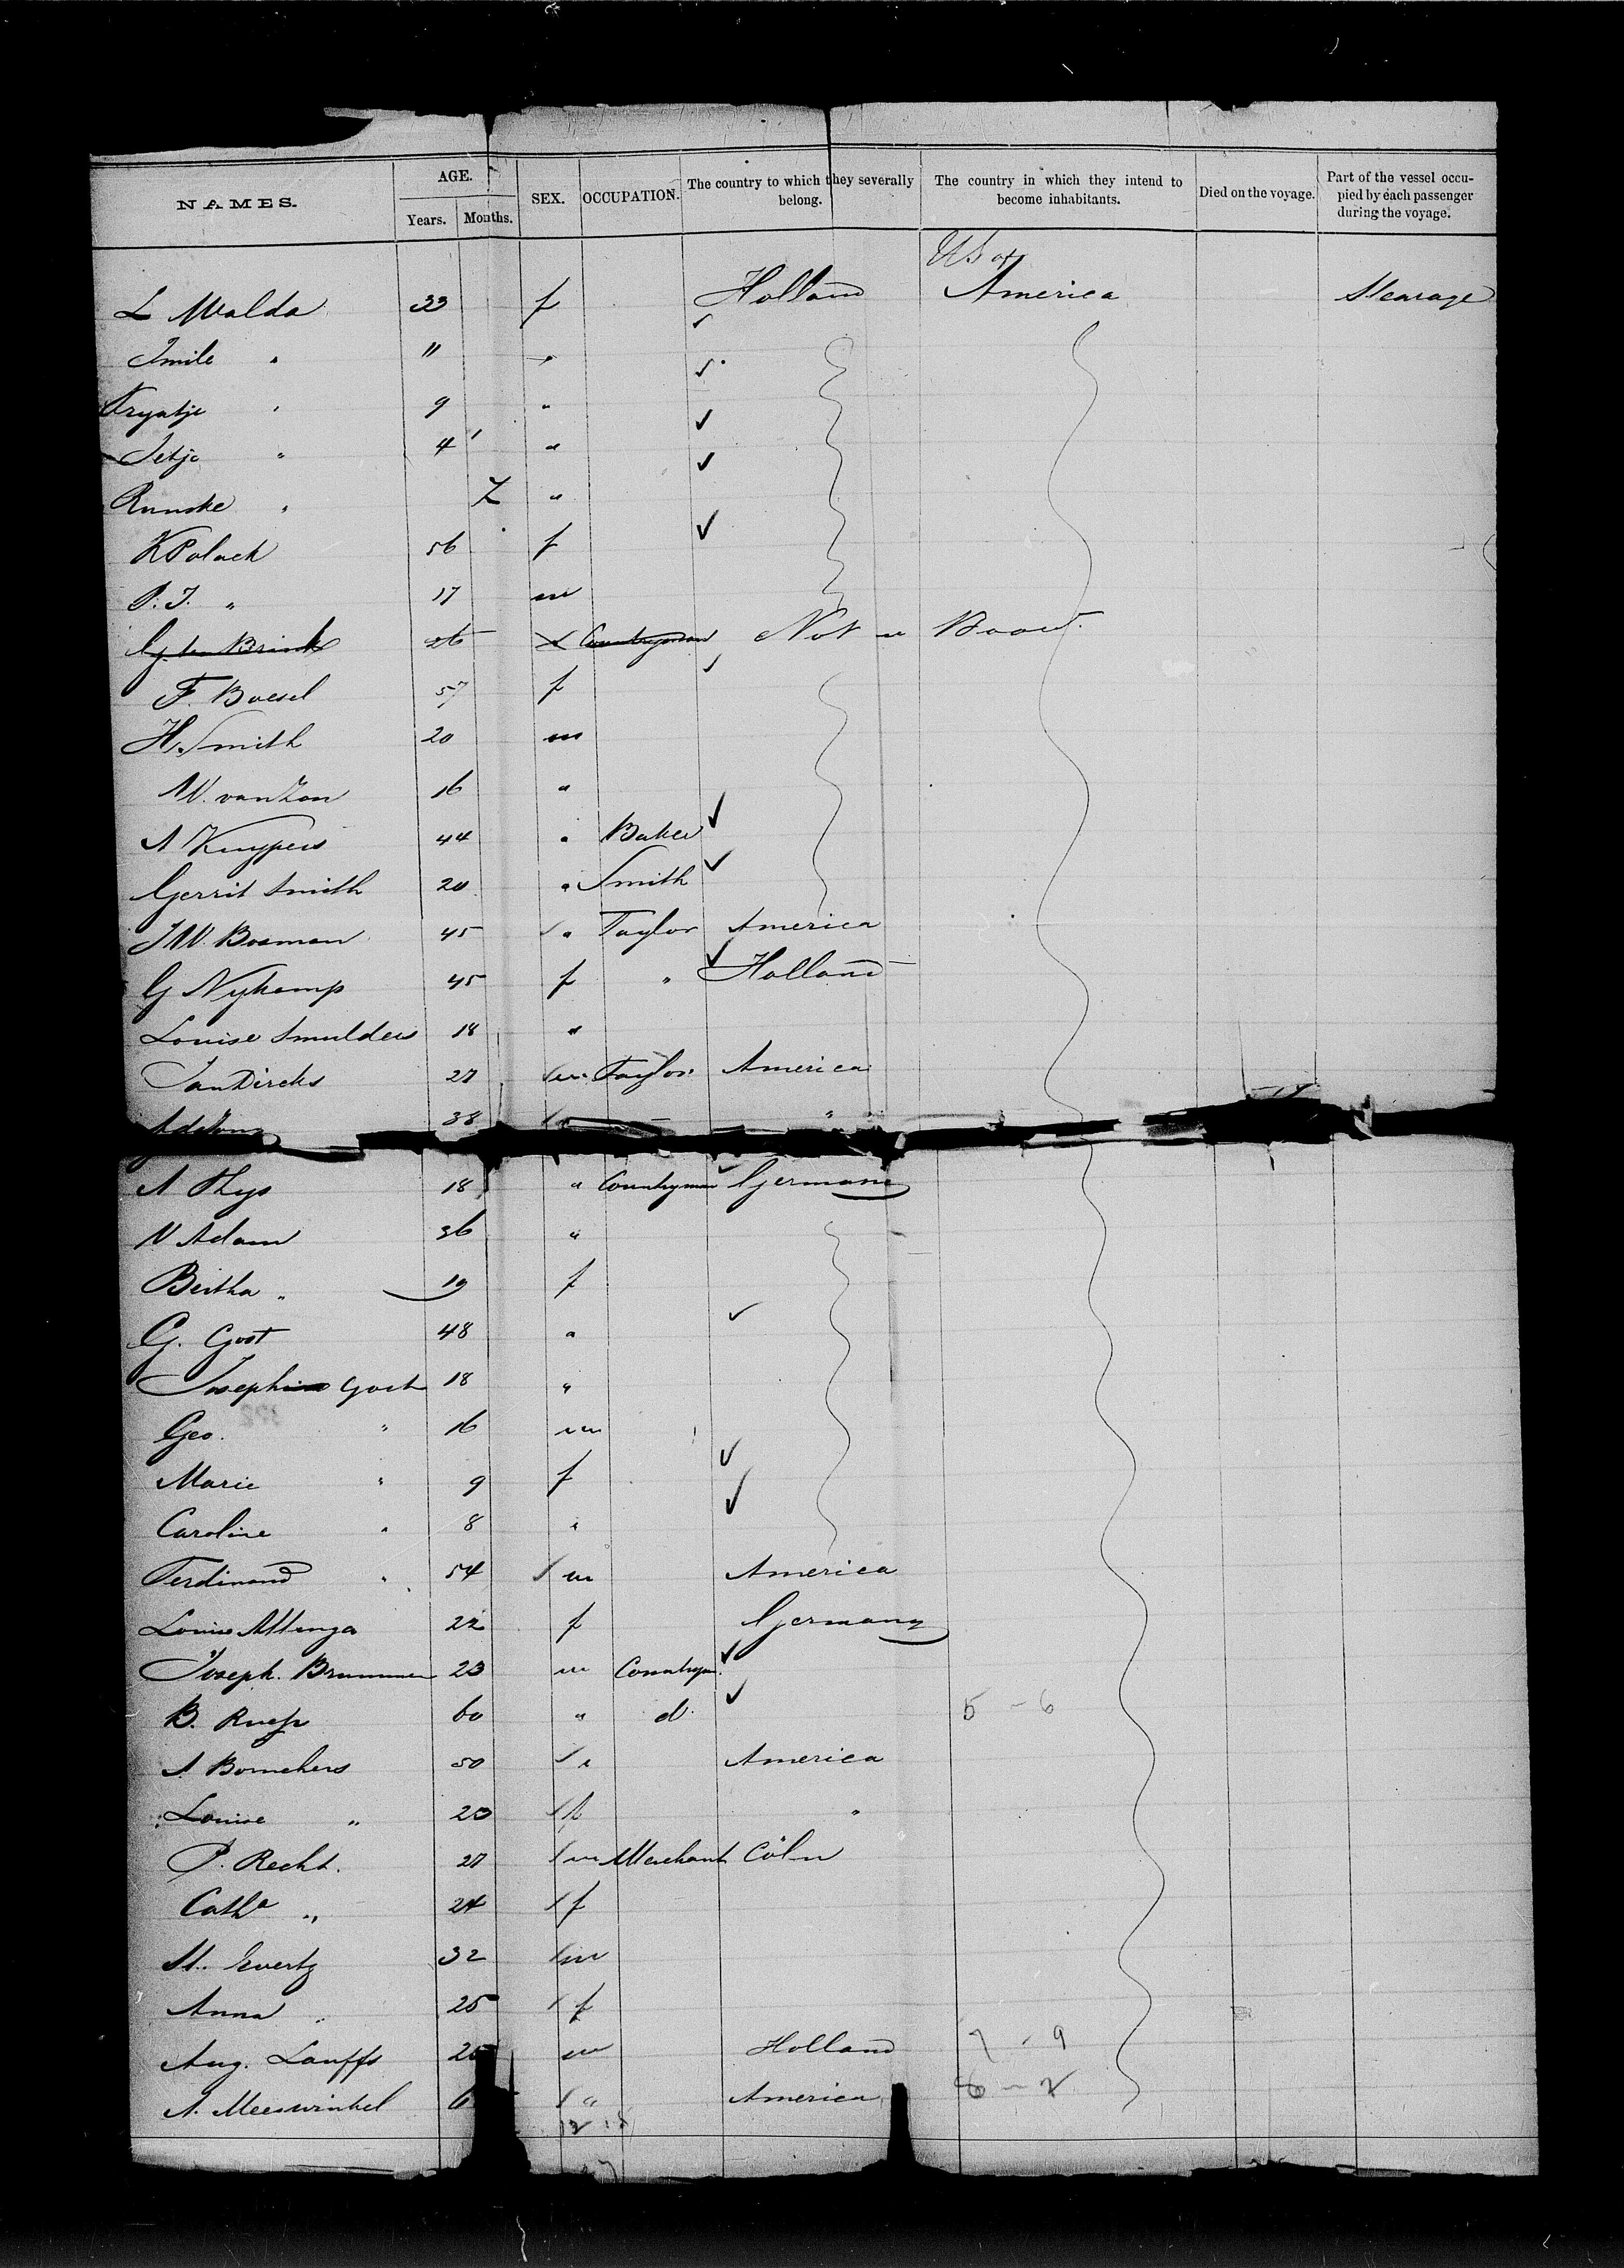 NAMES. AGE. Years. Months. SEX. OCCUPATION. The country to which they severally belong. The country in which they intend to become inhabitants. Died on the voyage. Part of the vessel occupied by each passenger during the voyage.
US of
L Walda 33 f Holland America Stearage
" 11 "
" 9 "
Jetje " 4 "
" "
K Polack 56 f
P. J. " 17 m
G. ten Brink 26 Countryman Not on Board.
F. Boesel 57 f
H. Smith 20 m
W. van Zon 16 "
A Kuypers 44 " Baker
Gerrit Smith 20 " Smith
J W. Bosman 45 " Taylor America
G Nykamp 45 f " Holland
Louise Smulders 18 "
Jan Dircks 27 m Taylor America
A de Jong 38 "
A Thys 18 " Countryman Germany
N Adam 36 "
Bertha " 19 f
G. Gost 48 "
Josephine Gost 18 "
Geo. " 16 m
Marie " 9 f
Caroline " 8 "
Ferdinand " 54 m America
Louise 22 f Germany
Joseph. Brummer 23 m Countrym.
B. 60 " d. 5 - 6
A 50 " America
Louise " 23 f "
P. Recht. 27 m Merchant Cöln
Catha " 24 f
Evertz 32 m
Anna " 25 f
Aug. Lauffs m Holland 7 - 9
A. Meeswinkel 6 " America